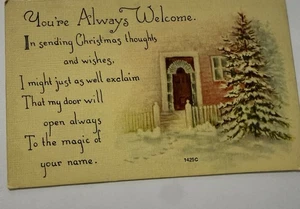 You're Always Welcome.
In sending Christmas thoughts
and wishes,
I might just as well exclaim
That my door will
open always
To the magic of
your name.
1425C